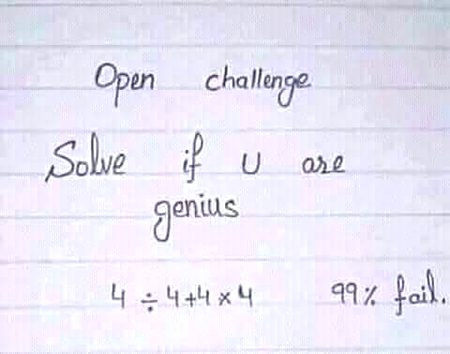 Open challenge
Solve if U are
genius
4 ÷ 4+4 × 4 99% fail.